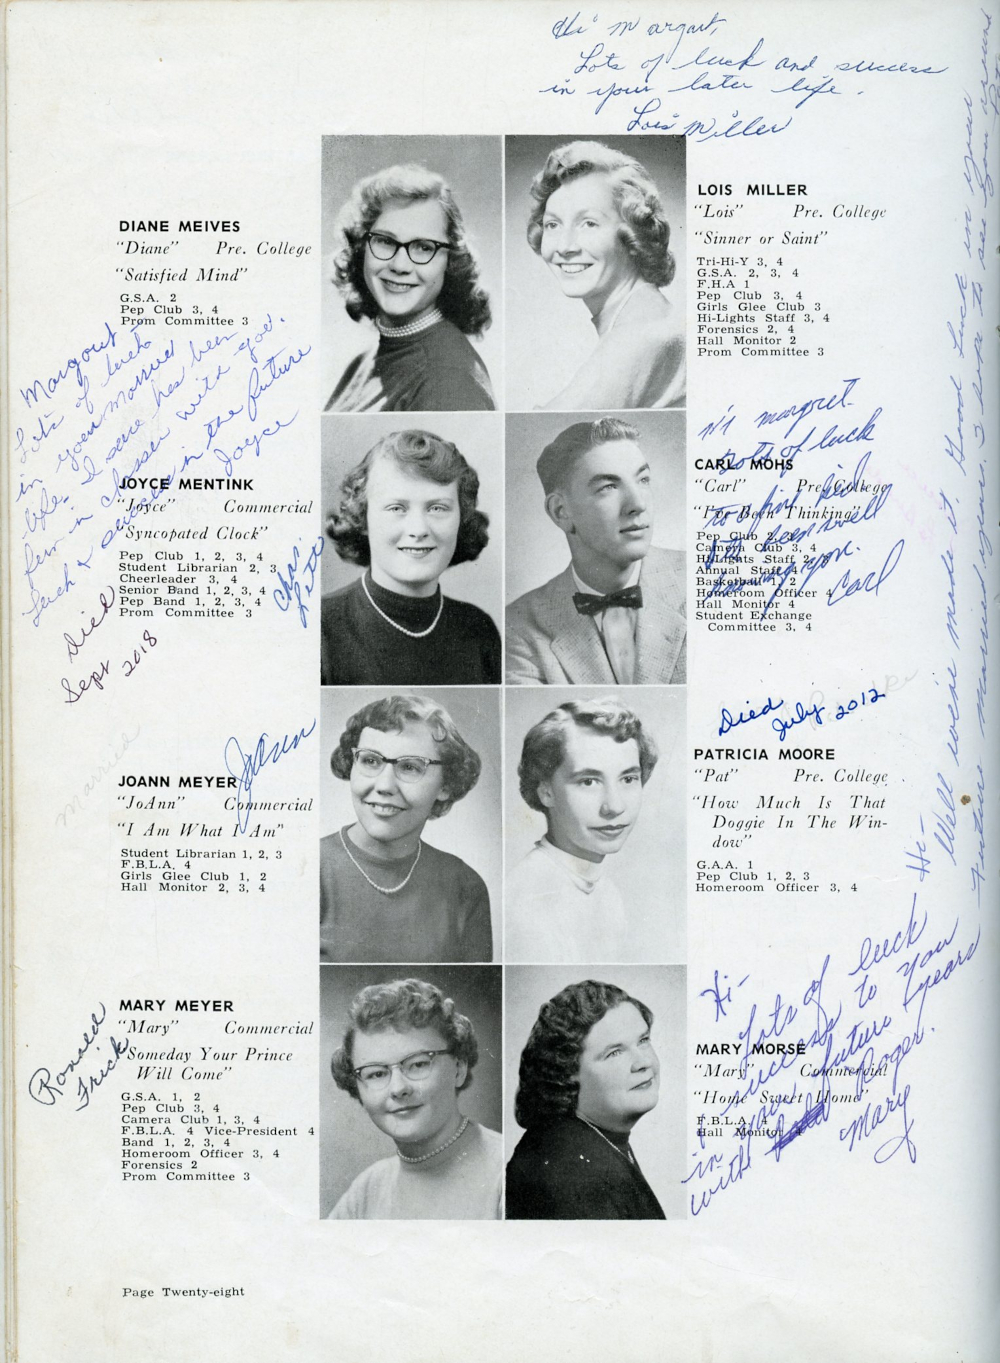 Hi Margart,
Lots of luck and success
in your later life.
Lois Miller
DIANE MEIVES
"Diane" Pre. College
"Satisfied Mind"
G.S.A. 2
Pep Club 3, 4
Prom Committee 3
LOIS MILLER
"Lois" Pre. College
"Sinner or Saint"
Tri-Hi-Y 3, 4
G.S.A. 2, 3, 4
F.H.A 1
Pep Club 3, 4
Girls Glee Club 3
Hi-Lights Staff 3, 4
Forensics 2, 4
Hall Monitor 2
Prom Committee 3
Margout -
Lots of luck
in your married
life. I sure has been
fun in classes with you.
Luck & success in the future
Joyce
JOYCE MENTINK
"Joyce" Commercial
"Syncopated Clock"
Pep Club 1, 2, 3, 4
Student Librarian 2, 3
Cheerleader 3, 4
Senior Band 1, 2, 3, 4
Pep Band 1, 2, 3, 4
Prom Committee 3
Died
Sept 2018
Hi margret.
Lots of luck
Carl
CARL MOHS
"Carl" Pre. College
"I've Been Thinking"
Pep Club 2
Camera Club 3, 4
Hi-Lights Staff 2, 3
Annual Staff 4
Basketball 1, 2
Homeroom Officer 4
Hall Monitor 4
Student Exchange
Committee 3, 4
JoAnn
Married
JOANN MEYER
"JoAnn" Commercial
"I Am What I Am"
Student Librarian 1, 2, 3
F.B.L.A. 4
Girls Glee Club 1, 2
Hall Monitor 2, 3, 4
Died
July 2012
PATRICIA MOORE
"Pat" Pre. College
"How Much Is That
Doggie In The Win-
dow"
G.A.A. 1
Pep Club 1, 2, 3
Homeroom Officer 3, 4
Ronald
Frick
MARY MEYER
"Mary" Commercial
"Someday Your Prince
Will Come"
G.S.A. 1, 2
Pep Club 3, 4
Camera Club 1, 3, 4
F.B.L.A. 4 Vice-President 4
Band 1, 2, 3, 4
Homeroom Officer 3, 4
Forensics 2
Prom Committee 3
MARY MORSE
"Mary" Commercial
"Home Sweet Home"
F.B.L.A. 4
Hall Monitor 4
Hi-
Lots of luck
& success to you
in your future years
with Roger.
Mary
Hi-
Well we've made it. Good Luck in your
future married years. I hope to see you around
Page Twenty-eight